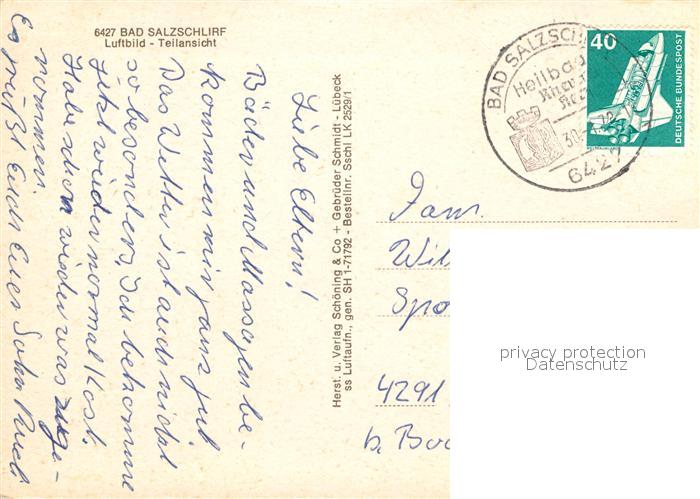 6427 BAD SALZSCHLIRF
Luftbild - Teilansicht
Liebe Eltern!
Bäder und Massagen be-
kommen mir ganz gut.
Das Wetter ist auch nicht
so besonders. Ich bekomme
jetzt wieder normal Kost.
Habe schon wieder was zuge-
nommen.
Es grüßt Euch Euer Sohn
Herst. u. Verlag Schöning & Co + Gebrüder Schmidt - Lübeck
ss Luftaufn., gen. SH 1-71792 - Bestellnr. Sschl LK 2529/1
BAD SALZSCH
Heilbad
30
6427
40
DEUTSCHE BUNDESPOST
Fam.
Wil
Spo
4291
b. Boc
privacy protection
Datenschutz